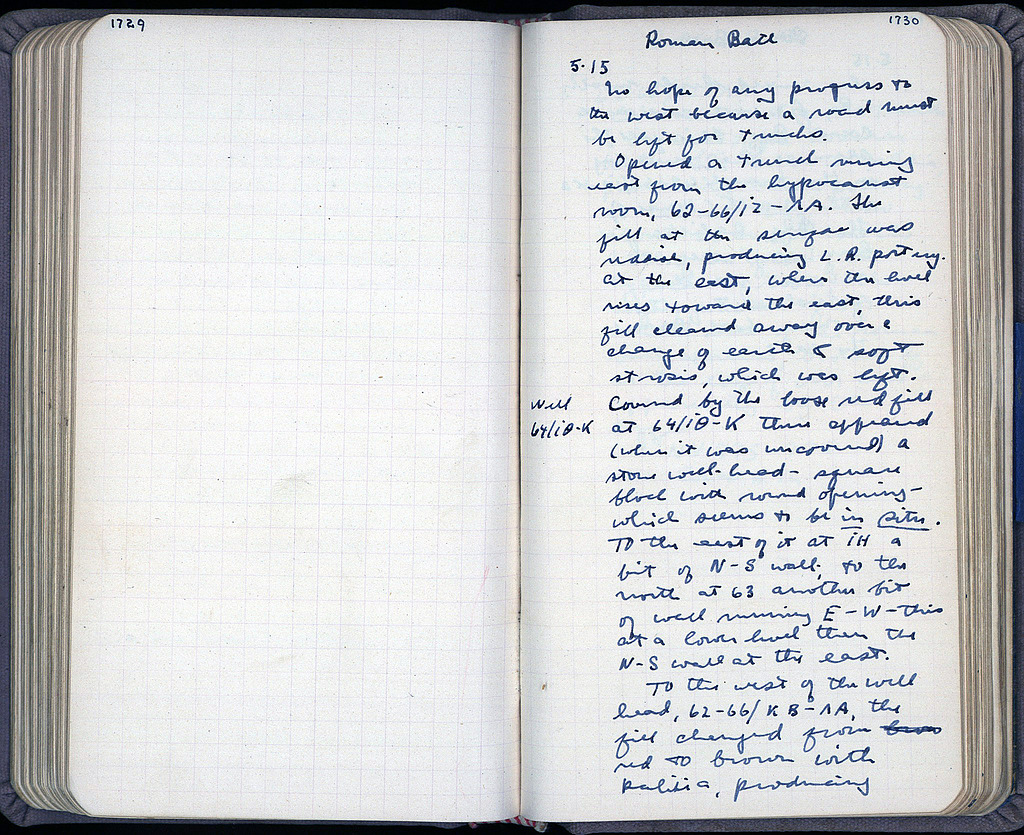 1729
1730
Roman Bath
5.15
No hope of any progress to
the west because a road must
be left for trucks.
Opened a trench running
east from the hypocaust
room, 62-66/ΙΖ-ΛΑ. The
fill at the surface was
reddish, producing L.R. pottery.
At the east, where the level
rises toward the east, this
fill cleared away over a
change of earth & soft
strosis, which was left.
Well
64/ΙΘ-Κ
Covered by the loose red fill
at 64/ΙΘ-Κ there appeared
(when it was uncovered) a
stone well-head - square
block with round opening -
which seems to be in situ.
To the east of it at ΙΗ a
bit of N-S wall; to the
north at 63 another bit
of wall running E-W - this
at a lower level than the
N-S wall at the east.
To the west of the well
head, 62-66/ΚΒ-ΛΑ, the
fill changed from brow
red to brown with
kalitia, producing